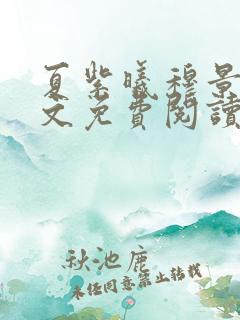 夏紫曦穆景
文免費閱讀
秋池鹿
未经同意禁止转载